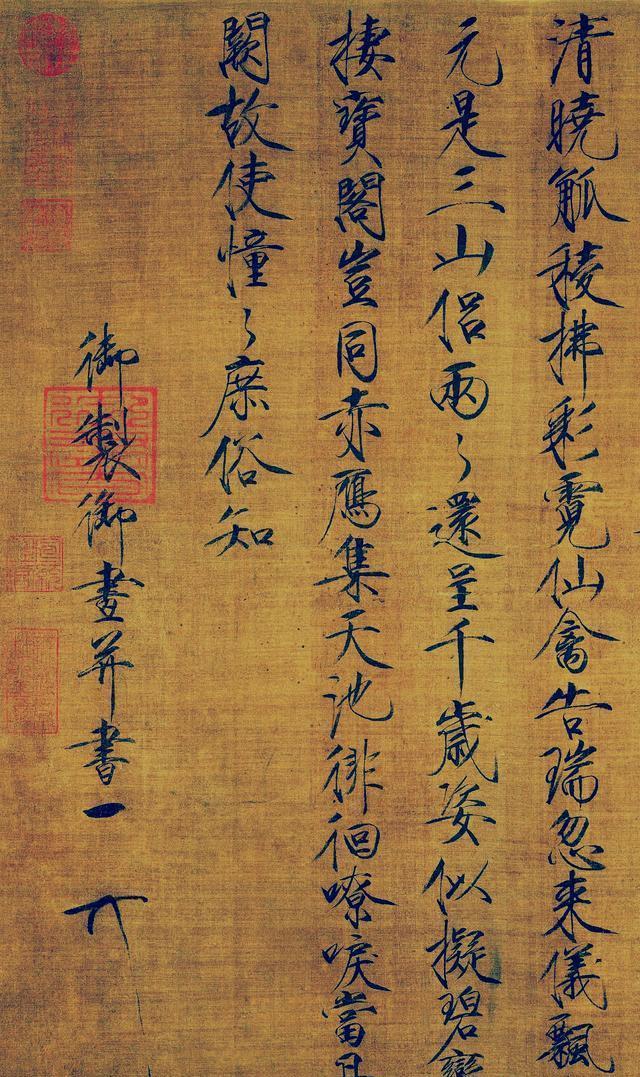 清曉觚稜拂彩霓仙禽告瑞忽來儀飄
元是三山侶兩〻還呈千歲姿似擬碧鸞
棲寶閣豈同赤鴈集天池徘徊嘹唳當丹
闕故使憧〻庶俗知
御製御畫并書一